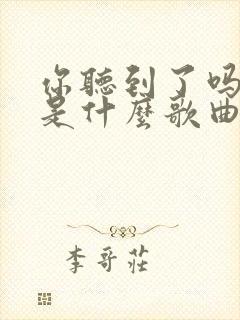 你聽到了吗
是什麼歌曲
李哥莊